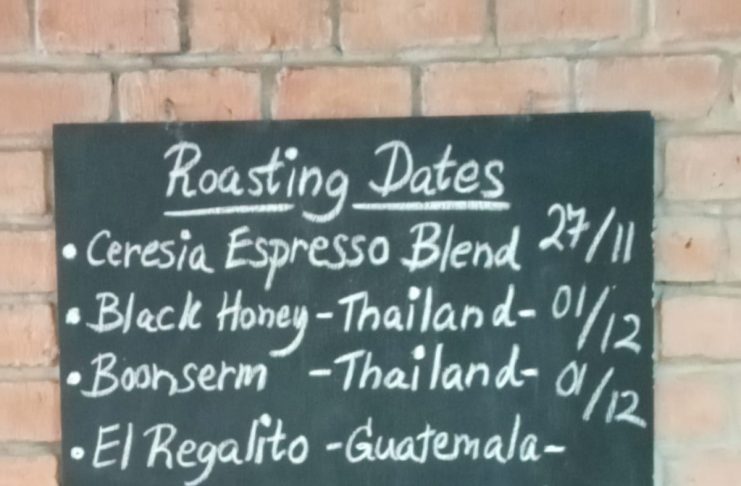 Roasting Dates
• Ceresia Espresso Blend 27/11
• Black Honey - Thailand - 01/12
• Boonserm - Thailand - 01/12
• El Regalito - Guatemala -